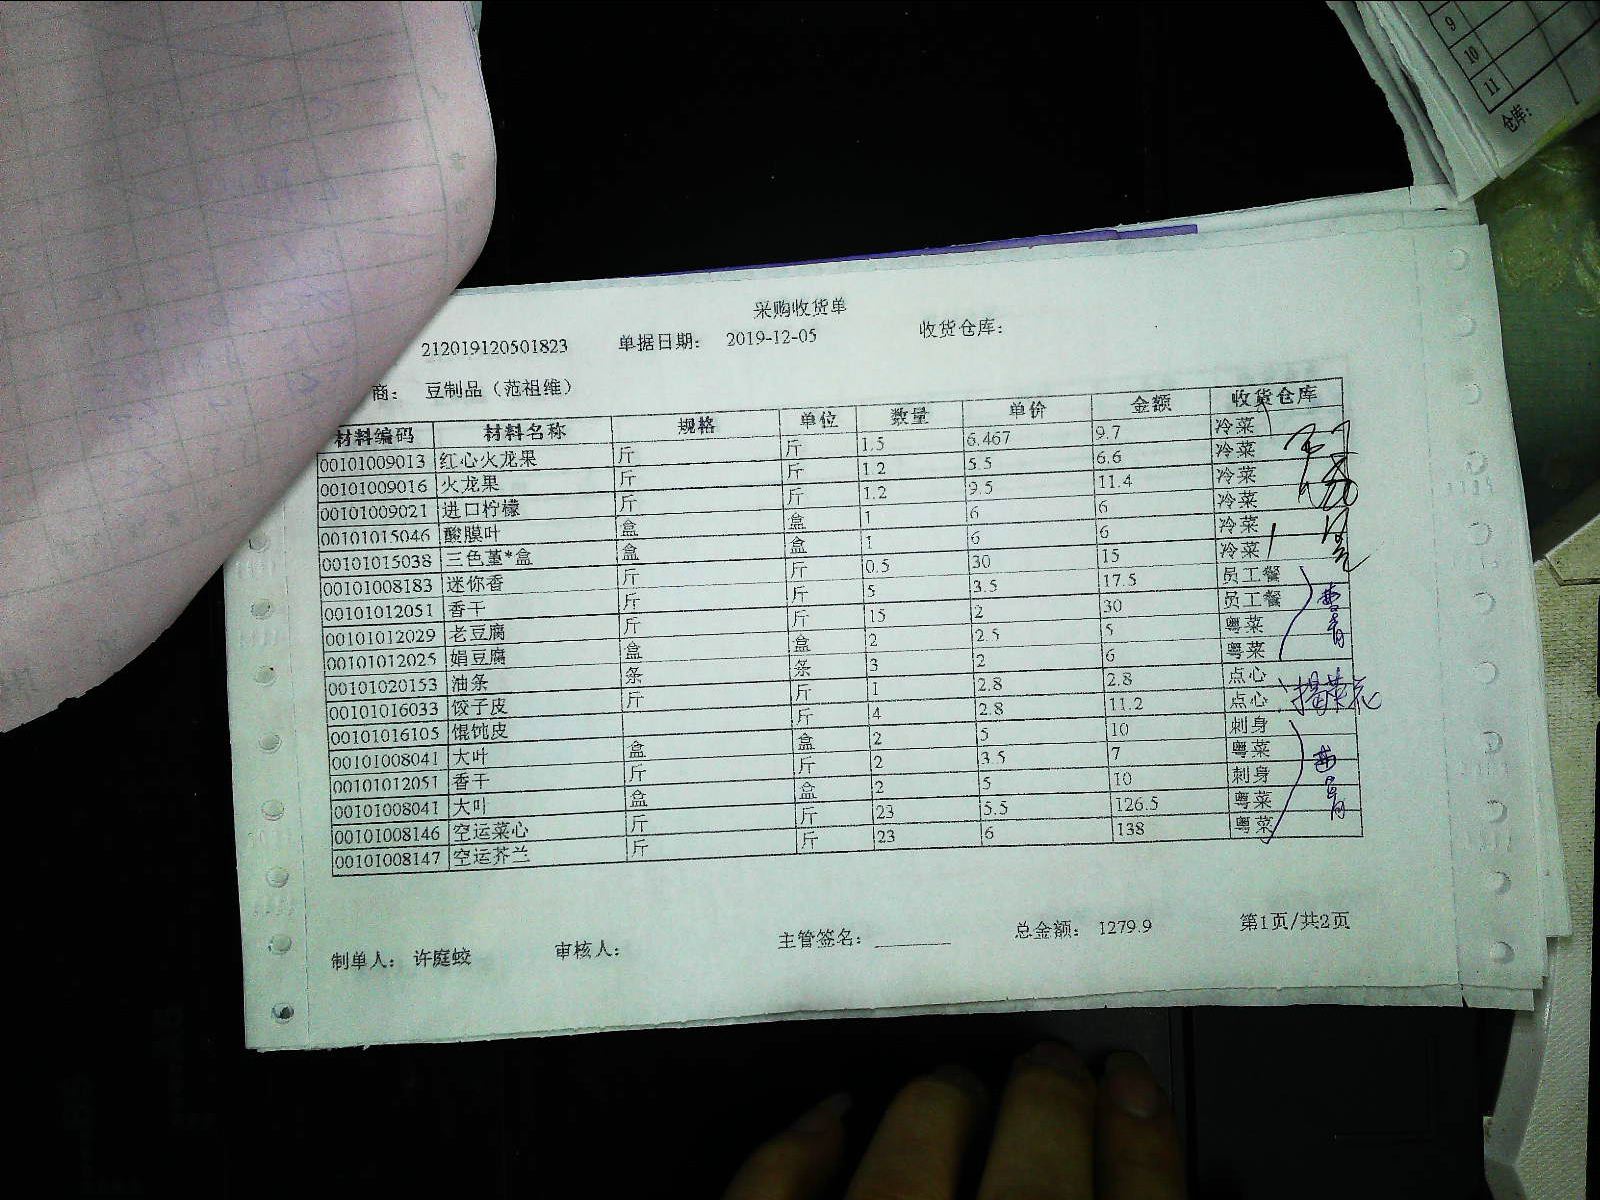 采购收货单
212019120501823 单据日期： 2019-12-05 收货仓库：
商： 豆制品（范祖维）
材料编码 材料名称 规格 单位 数量 单价 金额 收货仓库
00101009013 红心火龙果 斤 斤 1.5 6.467 9.7 冷菜
00101009016 火龙果 斤 斤 1.2 5.5 6.6 冷菜
00101009021 进口柠檬 斤 斤 1.2 9.5 11.4 冷菜
00101015046 酸膜叶 盒 盒 1 6 6 冷菜
00101015038 三色堇*盒 盒 盒 1 6 6 冷菜
00101008183 迷你香 斤 斤 0.5 30 15 冷菜
00101012051 香干 斤 斤 5 3.5 17.5 员工餐
00101012029 老豆腐 斤 斤 15 2 30 员工餐
00101012025 娟豆腐 盒 盒 2 2.5 5 粤菜
00101020153 油条 条 条 3 2 6 粤菜
00101016033 饺子皮 斤 斤 1 2.8 2.8 点心
00101016105 馄饨皮 斤 4 2.8 11.2 点心
00101008041 大叶 盒 盒 2 5 10 刺身
00101012051 香干 斤 斤 2 3.5 7 粤菜
00101008041 大叶 盒 盒 2 5 10 刺身
00101008146 空运菜心 斤 斤 23 5.5 126.5 粤菜
00101008147 空运芥兰 斤 斤 23 6 138 粤菜
制单人： 许庭蛟 审核人： 主管签名： 总金额： 1279.9 第1页/共2页
9
10
11
仓库：